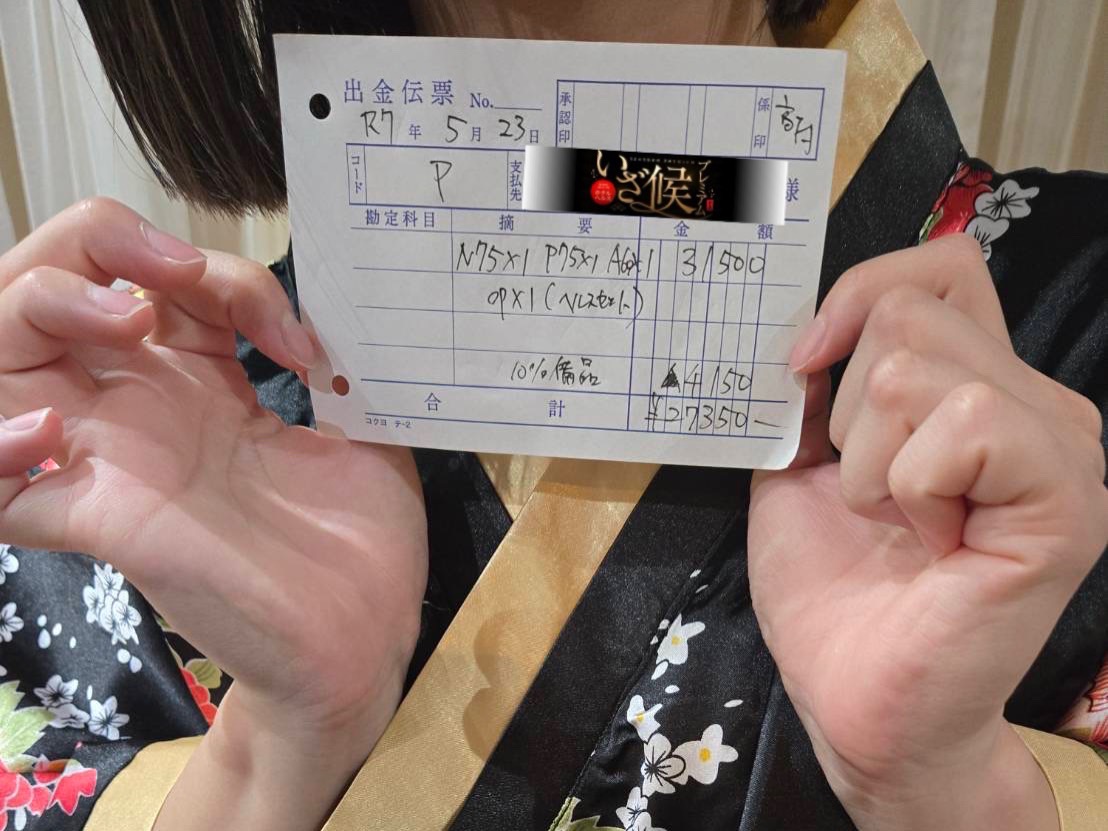 出金伝票 No.
承認印
係印
R7年5月23日
コード P
支払先
いざ候
プレミアム
様
勘定科目 摘要 金額
N75×1 P75×1 A60×1 31500
op×1
10%備品 ▲4150
合計 ¥27350—
コクヨ テ-2